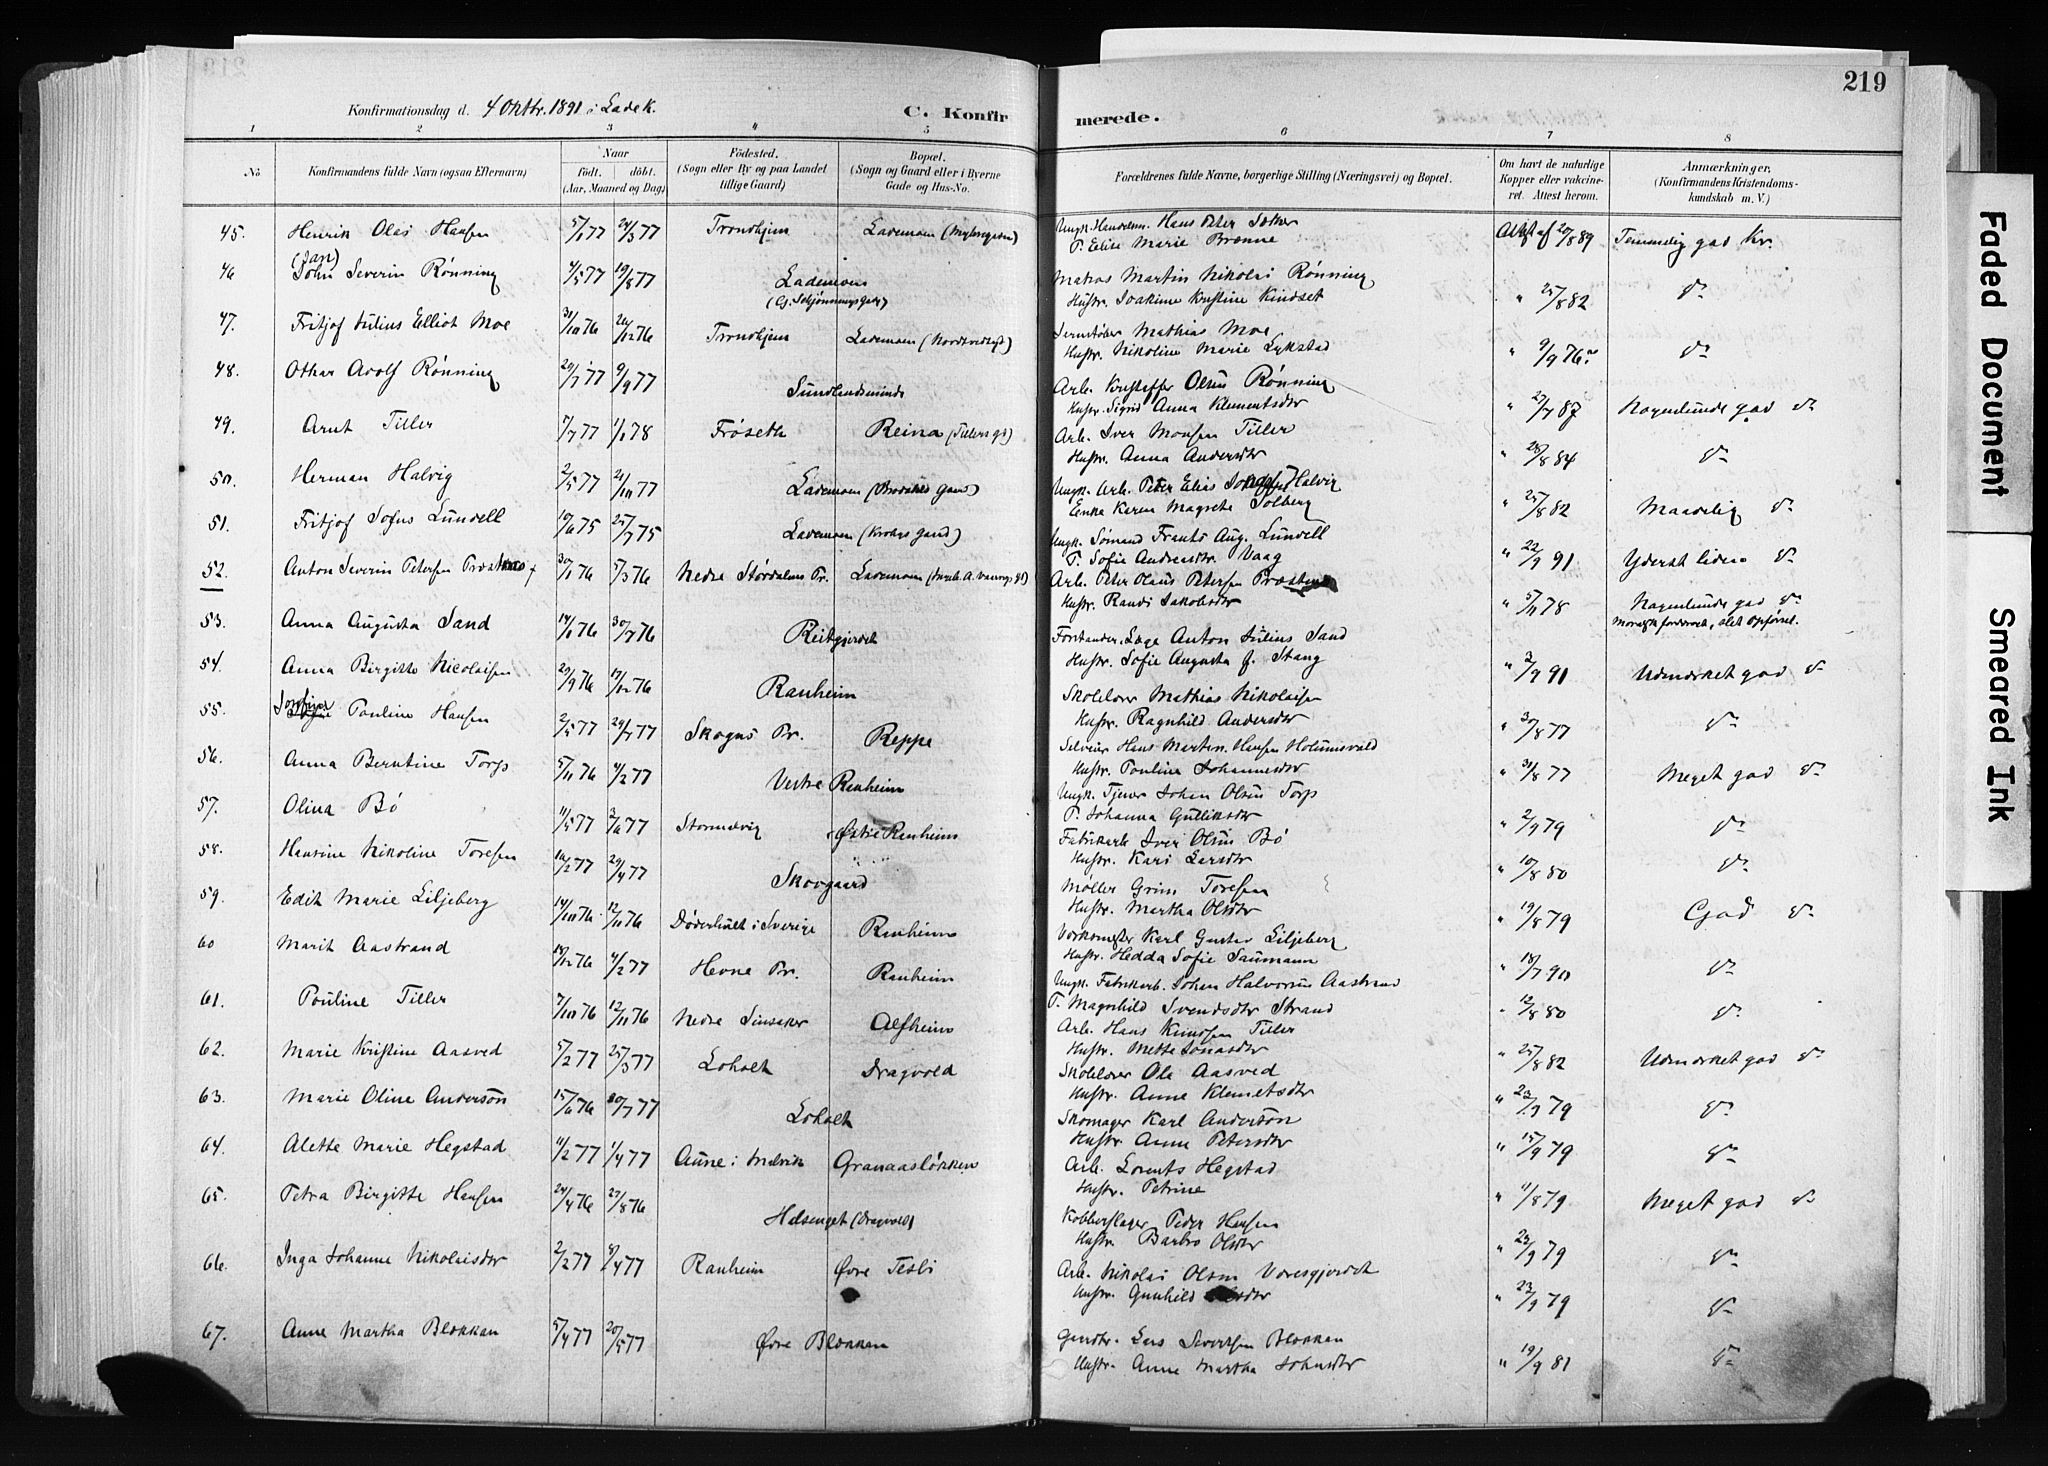 219
Konfirmationsdag d. 4 Oktbr. 1891 i Lade K.
C. Konfirmerede.
1 2 3 4 5 6 7 8
No.
Konfirmandens fulde Navn (ogsaa Efternavn)
Naar
Födt. döbt.
(Aar, Maaned og Dag)
Födested.
(Sogn eller By og paa Landet
tillige Gaard)
Bopæl.
(Sogn og Gaard eller i Byerne
Gade og Hus-No.
Forældrenes fulde Navne, borgerlige Stilling (Næringsvei) og Bopæl.
Om havt de naturlige
Kopper eller vakcine-
ret. Attest herom.
Anmærkninger,
(Konfirmandens Kristendoms-
kundskab m. V.)
45. Henrik Olai Hansen 5/1 77 24/3 77 Trondhjem Lademoen
Ungk. Handelsm. Hans Peter
P. Elise Marie Brenne
Attest af 20/8 89 Temmelig god Kr.
(Jan)
46 John Severin Rønning 4/5 77 19/8 77 Lademoen
(G. Schjønningsgate)
Matros Martin Nikolai Rønning
Hustr. Joakime Kristine Kindset
" 25/8 82 do
47. Fritjof Julius Elliot Moe 31/10 76 26/12 76 Trondhjem Lademoen
Jernstøber Mathias Moe
Hustr. Nikoline Marie Lykstad
" 9/9 76 do
48. Othar Adolf Rønning 20/7 77 9/9 77 Sundlandsminde
Arb. Kristoffer Olsen Rønning
Hustr. Sigrid Anna Klementsdtr
" 27/7 87 Nogenlunde god do
49. Arnt Tiller 5/7 77 1/1 78 Frøseth Reina (Tillers gd)
Arb. Iver Monsen Tiller
Hustr. Anna Andersdtr
" 28/8 84 do
50. Herman Halvig 2/5 77 21/10 77 Lademoen
Ungk. Arb. Peter Elias Halvig
Enke Karen Magrete Solberg
" 25/8 82 Maadelig do
51. Fritjof Sofus Lundell 10/6 75 25/7 75 Lademoen (Krohgs Gaard)
Ungk. Sømand Frants Aug. Lundell
P. Sofie Andreasdtr. Vaag
" 22/9 91 Yderst liden do
52. Anton Severin Petersen 30/1 76 5/3 76 Nedre Størdalens Pr. Lademoen
Arb. Peter Olaus Petersen
Hustr. Randi Jakobsdtr
" 5/11 78 Nogenlunde god do
moralsk fordærvet, slet Opførsel.
53. Anna Augusta Sand 14/1 76 30/7 76 Reitgjerdet
Forstander, Læge Anton Julius Sand
Hustr. Sofie Augusta f. Stang
" 2/9 91 Udmærket god do
54. Anna Birgitte Nicolaisen 29/9 76 17/12 76 Ranheim
Skolelærer Mathias Nikolaisen
Hustr. Ragnhild Andersdtr
" 30/8 77 do
55. Josefine Pauline Hansen 2/5 77 29/7 77 Skogns Pr. Reppe
Selveier Hans Martin Hansen
Hustr. Pauline Johannesdtr
" 31/8 77 Meget god do
56. Anna Berntine Torp 5/11 76 4/2 77 Vestre Ranheim
Ungk. Tjener Johan Olsen Torp
P. Johanna Gulliksdtr
" 2/9 79 do
57. Olina Bö 11/5 77 3/6 77 Østre Ranheim
Fabrikarb. Iver Olsen Bö
Hustr. Kari Larsdtr
" 10/8 80 do
58. Hansine Nikoline Toresen 16/2 77 29/4 77 Skovgaard
Møller Grim Toresen
Hustr. Martha Olsdtr
" 19/8 79 God do
59. Edit Marie Liljeberg 14/10 76 12/11 76 Döderhult i Sverige Ranheim
Værksmester Karl Gustav Liljeberg
Hustr. Hedda Sofie Saumann
" 18/7 90 do
60 Marit Aastrand 18/12 76 4/2 77 Hevne Pr. Ranheim
Ungk. Fabrikarb. Johan Halvorsen Aastrand
P. Magnhild Svendsdtr Strand
" 12/8 80 do
61. Pauline Tiller 7/10 76 12/11 76 Nedre Sinsaker Alfheim
Arb. Hans Knudsen Tiller
Hustr. Mette Jonasdtr
" 25/8 82 Udmærket god do
62. Marie Kristine Aasved 5/2 77 25/3 77 Loholt Dragvold
Skolelærer Ole Aasved
Hustr. Anne Klemetsdtr
" 23/9 79 do
63. Marie Oline Anderson 15/6 76 30/7 77 Loholt
Skomager Karl Anderson
Hustr. Anne Petersdtr
" 15/9 79 do
64. Alette Marie Hegstad 11/2 77 1/4 77 Aune i Malvik Granaasløkken
Arb. Lorents Hegstad
Hustr. Petrine
" 11/8 79 Meget god do
65. Petra Birgitte Hansen 24/4 76 27/8 76 Helsenget (Dragvold)
Kobberslager Peder Hansen
Hustr. Barbro Olsdtr
" 23/9 79 do
66. Inga Johanne Nikolaisdtr 2/2 77 8/4 77 Ranheim Øvre Tesli
Arb. Nikolai Olsen Voresgjerdet
Hustr. Gunhild
" 23/9 79 do
67. Anne Martha Blekkan 5/4 77 20/5 77 Øvre Blekkan
Gaardbr. Lars Sivertsen Blekkan
Hustr. Anne Martha Johnsdtr
" 19/9 81 do
Faded Document
Smeared Ink